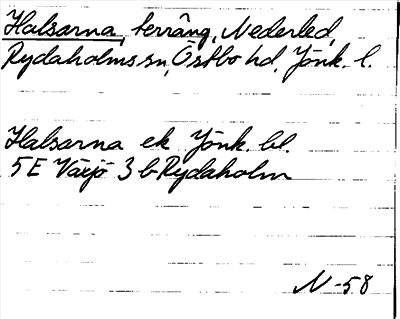 Halsarna, terräng, Nederled,
Rydaholms sn, Östbo hd, Jönk. l.
Halsarna ek Jönk. bl.
5 E Växjö 3 b Rydaholm
N-58